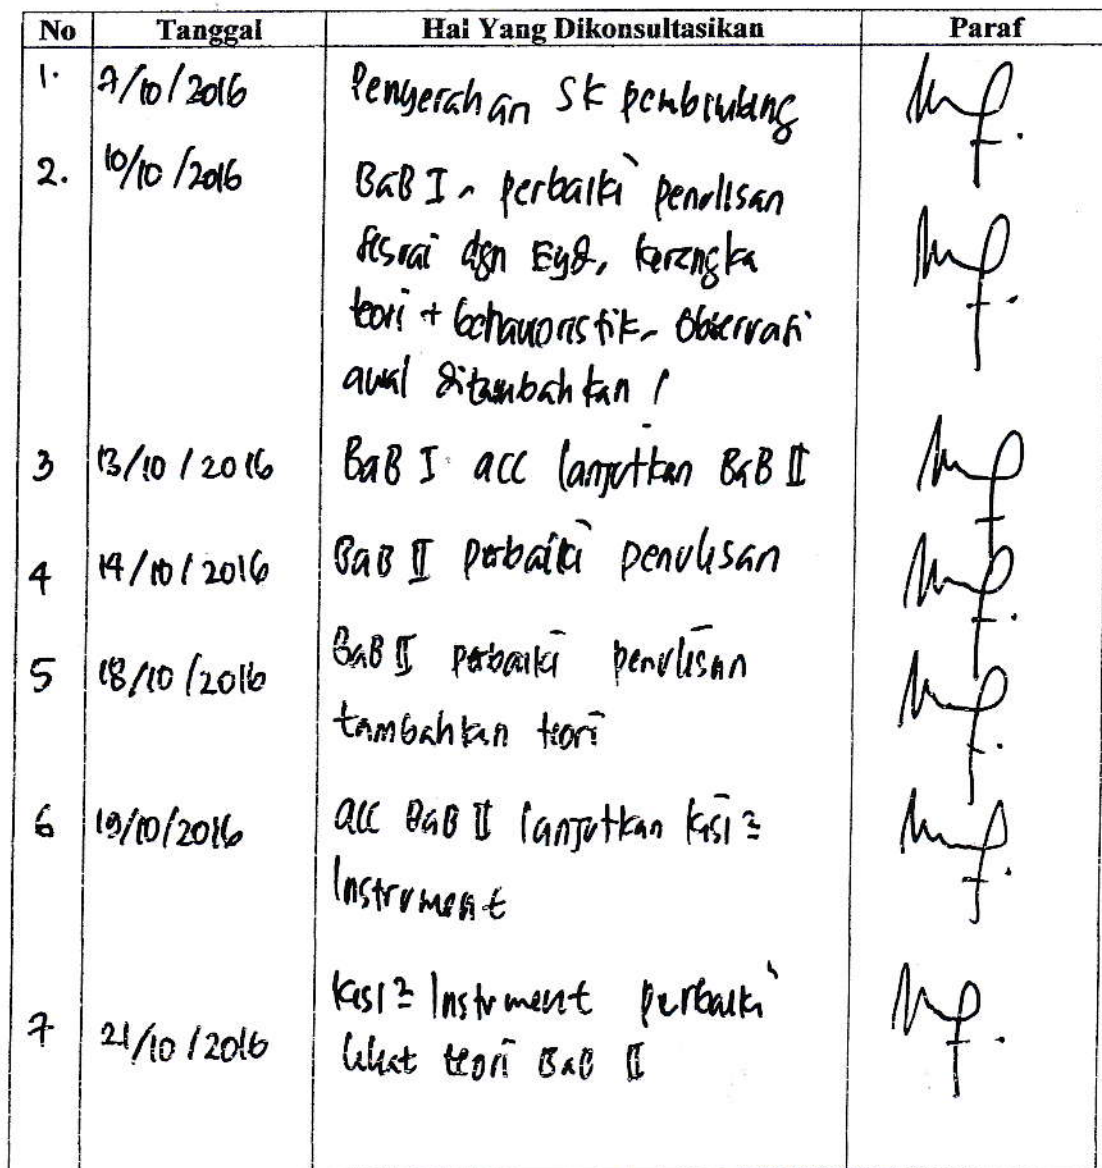 No Tanggal Hal Yang Dikonsultasikan Paraf
1. 7/10/2016 Penyerahan SK pembimbing
2. 10/10/2016 BaB I - perbaiki penulisan
sesuai dgn EyD, kerangka
teori + behavioristik - Observasi
awal ditambahkan !
3 13/10/2016 BaB I acc lanjutkan BaB II
4 14/10/2016 BaB II perbaiki penulisan
5 18/10/2016 BaB II perbaiki penulisan
tambahkan teori
6 19/10/2016 acc BaB II lanjutkan kisi2
Instrument
7 21/10/2016 kisi2 Instrument perbaiki
lihat teori BaB II